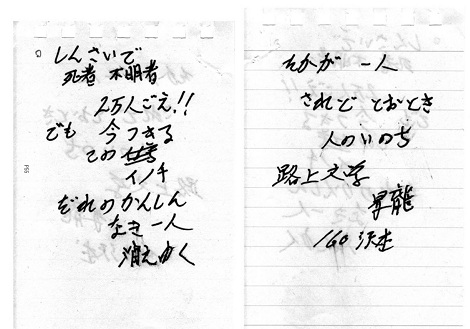 しんさいで
死者 不明者
2万人ごえ!!
でも 今つきる
この
イノチ
だれのかんしん
なき 一人
消えゆく
たかが 一人
されど とおとき
人のいのち
路上文学
昇龍
160